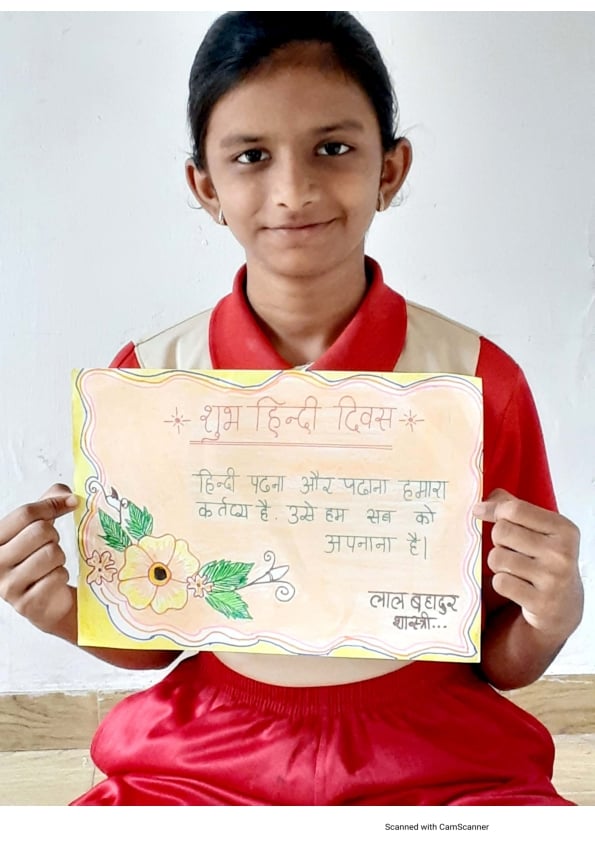 शुभ हिन्दी दिवस
हिन्दी पढना और पढाना हमारा
कर्तव्य है. उसे हम सब को
अपनाना है।
लाल बहादुर
शास्त्री...
Scanned with CamScanner